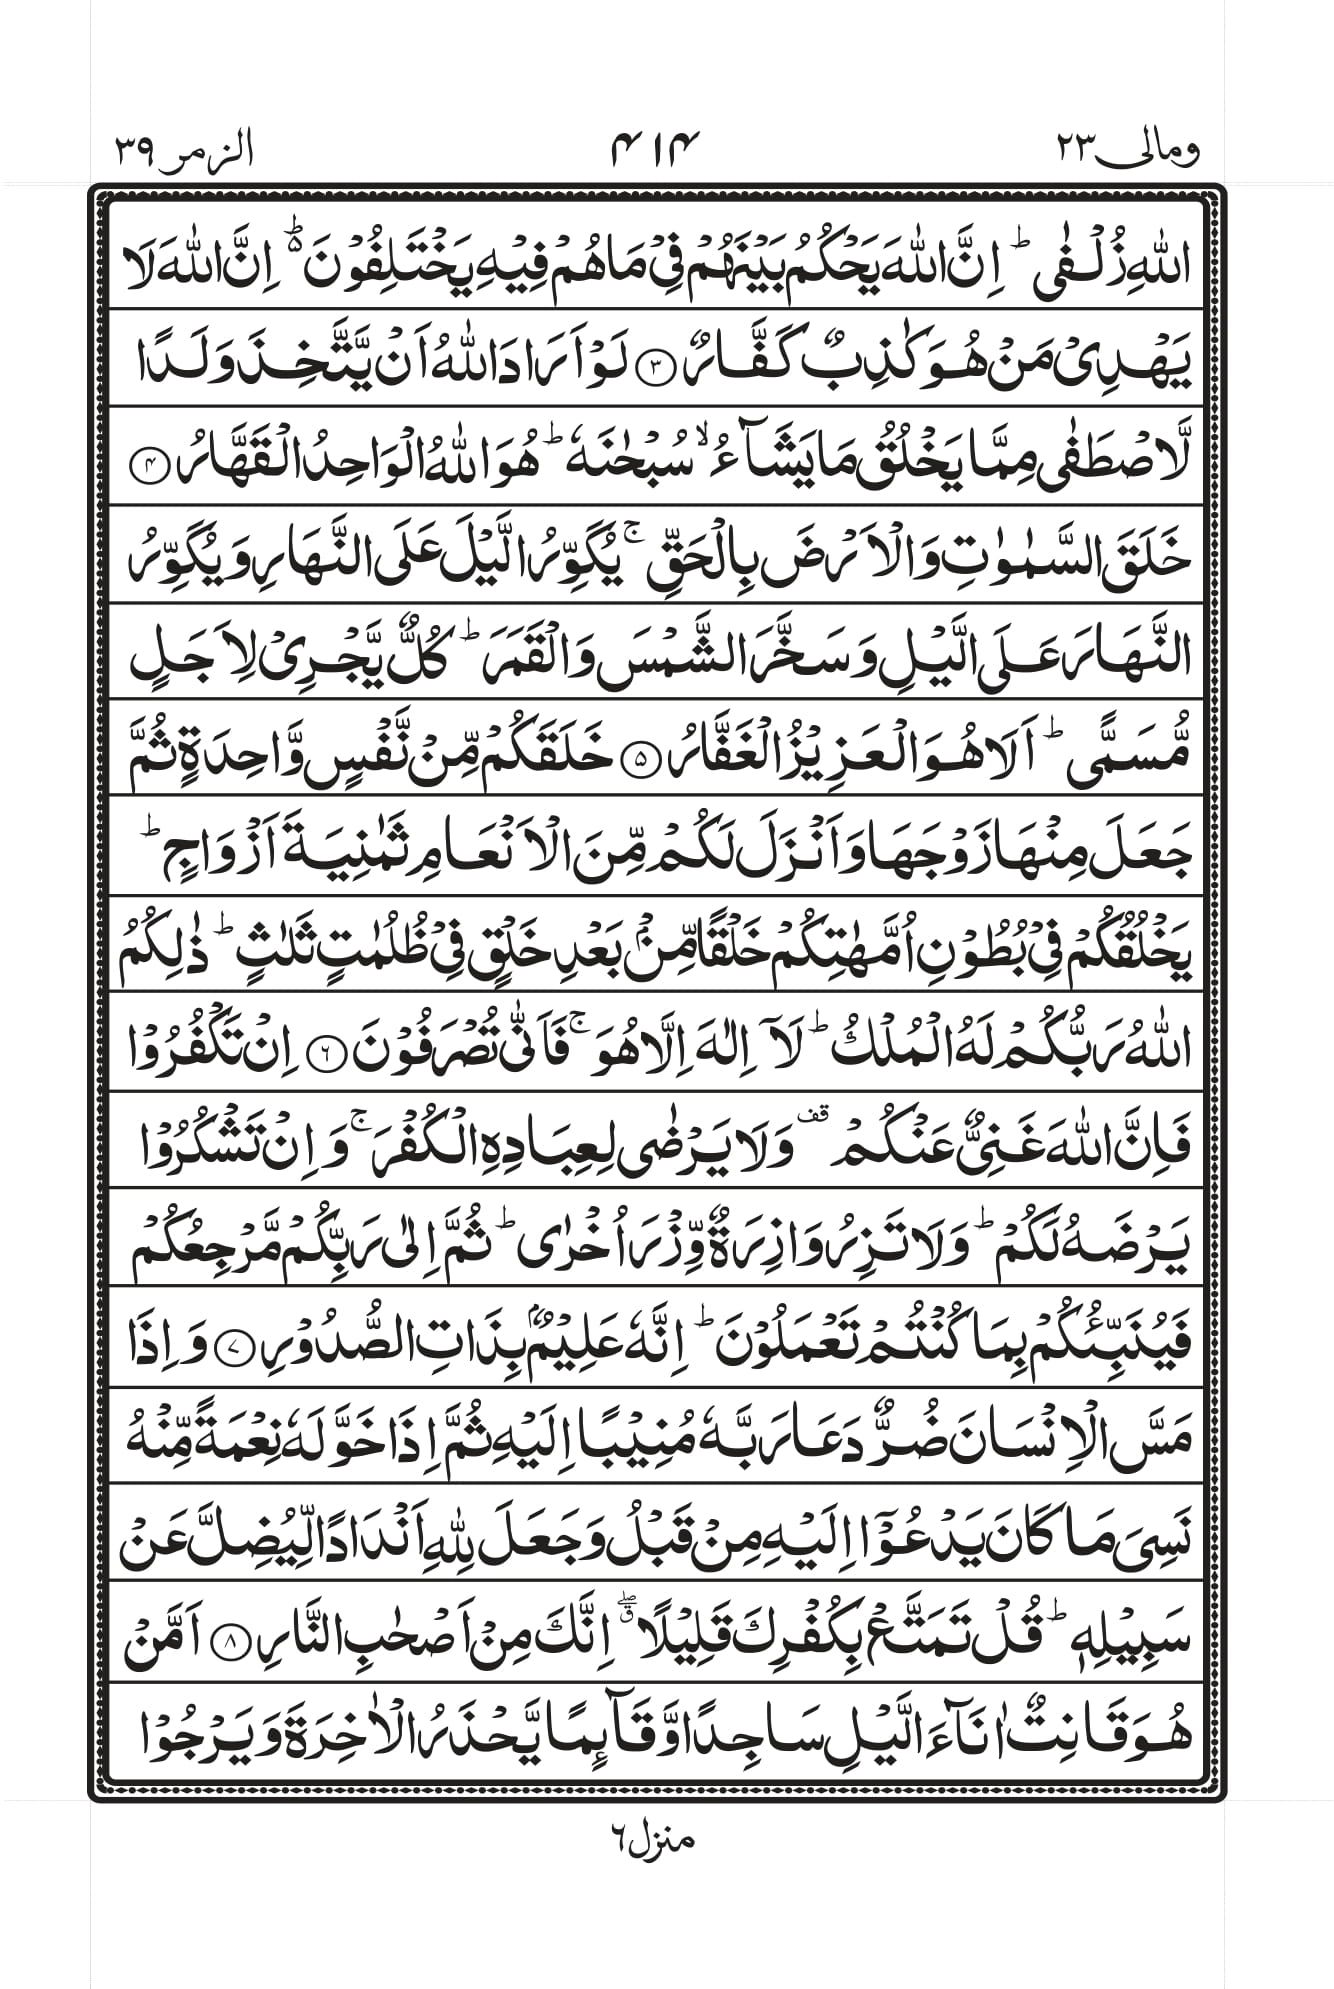 ومالی ٢٣ ۴١۴ الزمر ٣٩
اللّٰهِ زُلْـفٰى ؕ اِنَّ اللّٰهَ يَحْكُمُ بَيْنَهُمْ فِىْ مَا هُمْ فِيْهِ يَخْتَلِفُوْنَ ۥؕ اِنَّ اللّٰهَ لَا
يَهْدِىْ مَنْ هُوَ كٰذِبٌ كَفَّارٌ ﴿٣﴾ لَوْ اَرَادَ اللّٰهُ اَنْ يَّتَّخِذَ وَلَدًا
لَّاصْطَفٰى مِمَّا يَخْلُقُ مَا يَشَآءُ ۙ سُبْحٰنَهٗ ؕ هُوَ اللّٰهُ الْوَاحِدُ الْقَهَّارُ ﴿۴﴾
خَلَقَ السَّمٰوٰتِ وَالْاَرْضَ بِالْحَقِّ ۚ يُكَوِّرُ الَّيْلَ عَلَى النَّهَارِ وَيُكَوِّرُ
النَّهَارَ عَلَى الَّيْلِ وَسَخَّرَ الشَّمْسَ وَالْقَمَرَ ؕ كُلٌّ يَّجْرِىْ لِاَجَلٍ
مُّسَمًّى ؕ اَلَا هُوَ الْعَزِيْزُ الْغَفَّارُ ﴿۵﴾ خَلَقَكُمْ مِّنْ نَّفْسٍ وَّاحِدَةٍ ثُمَّ
جَعَلَ مِنْهَا زَوْجَهَا وَاَنْزَلَ لَكُمْ مِّنَ الْاَنْعَامِ ثَمٰنِيَةَ اَزْوَاجٍ ؕ
يَخْلُقُكُمْ فِىْ بُطُوْنِ اُمَّهٰتِكُمْ خَلْقًا مِّنْۢ بَعْدِ خَلْقٍ فِىْ ظُلُمٰتٍ ثَلٰثٍ ؕ ذٰلِكُمُ
اللّٰهُ رَبُّكُمْ لَهُ الْمُلْكُ ؕ لَاۤ اِلٰهَ اِلَّا هُوَ ۚ فَاَنّٰى تُصْرَفُوْنَ ﴿٦﴾ اِنْ تَكْفُرُوْا
فَاِنَّ اللّٰهَ غَنِىٌّ عَنْكُمْ قف وَلَا يَرْضٰى لِعِبَادِهِ الْكُفْرَ ۚ وَاِنْ تَشْكُرُوْا
يَرْضَهُ لَكُمْ ؕ وَلَا تَزِرُ وَازِرَةٌ وِّزْرَ اُخْرٰى ؕ ثُمَّ اِلٰى رَبِّكُمْ مَّرْجِعُكُمْ
فَيُنَبِّئُكُمْ بِمَا كُنْتُمْ تَعْمَلُوْنَ ؕ اِنَّهٗ عَلِيْمٌۢ بِذَاتِ الصُّدُوْرِ ﴿٧﴾ وَاِذَا
مَسَّ الْاِنْسَانَ ضُرٌّ دَعَا رَبَّهٗ مُنِيْبًا اِلَيْهِ ثُمَّ اِذَا خَوَّلَهٗ نِعْمَةً مِّنْهُ
نَسِىَ مَا كَانَ يَدْعُوْۤا اِلَيْهِ مِنْ قَبْلُ وَجَعَلَ لِلّٰهِ اَنْدَادًا لِّيُضِلَّ عَنْ
سَبِيْلِهٖ ؕ قُلْ تَمَتَّعْ بِكُفْرِكَ قَلِيْلًا ۖق اِنَّكَ مِنْ اَصْحٰبِ النَّارِ ﴿٨﴾ اَمَّنْ
هُوَ قَانِتٌ اٰنَآءَ الَّيْلِ سَاجِدًا وَّقَآئِمًا يَّحْذَرُ الْاٰخِرَةَ وَيَرْجُوْا
منزل ٦